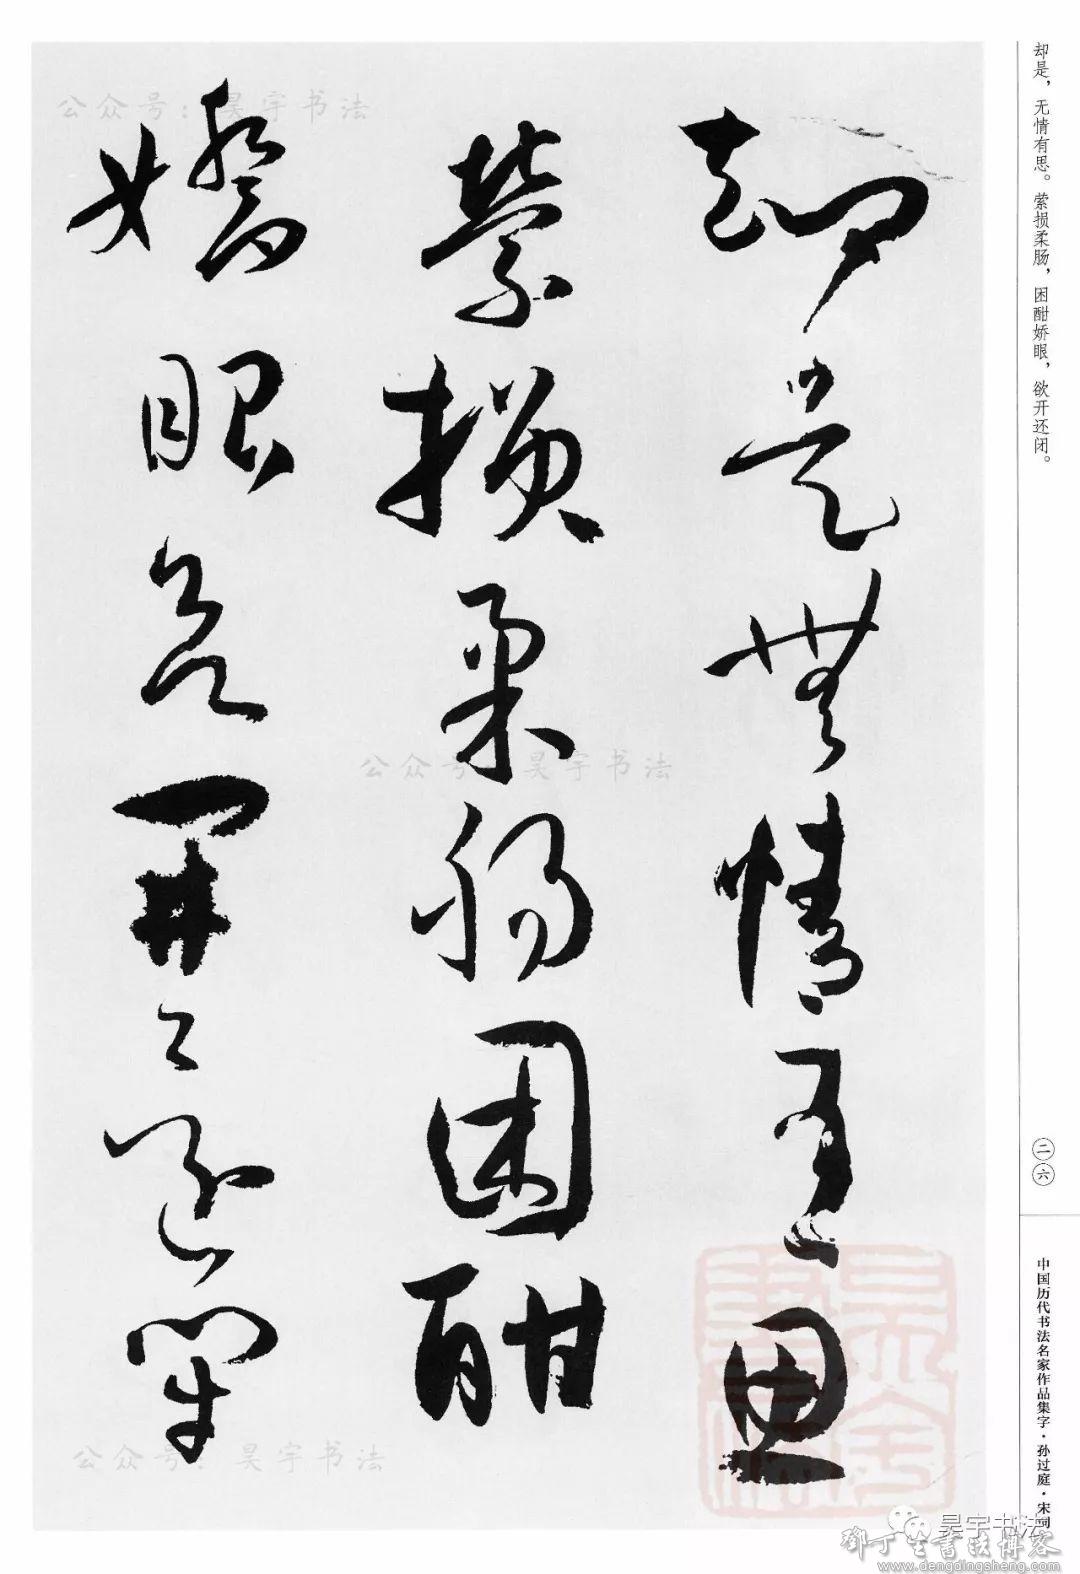 却是，无情有思。萦损柔肠，困酣娇眼，欲开还闭。
二六
中国历代书法名家作品集字·孙过庭·宋词
却是無情有思
縈損柔腸困酣
嬌眼欲開還閉
公众号：昊宇书法
公众号：昊宇书法
公众号：昊宇书法
昊宇书法
鄧丁生書法博客
www.dengdingsheng.com